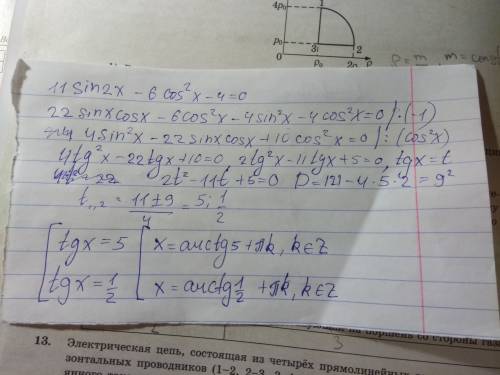 4p₀
p₀
1
3
2
0
p₀
2ρ₀
ρ
ρ = m
11 sin2x - 6cos²x - 4 = 0
22 sinxcosx - 6cos²x - 4sin²x - 4cos²x = 0 /·(-1)
4sin²x - 22sinxcosx + 10cos²x = 0 /: (cos²x)
4tg²x - 22tgx + 10 = 0, 2tg²x - 11tgx + 5 = 0, tgx = t
2t² - 11t + 5 = 0 D = 121 - 4·5·2 = 9²
t₁,₂ = (11 ± 9)/4 = 5; 1/2
tgx = 5 x = arctg5 + πk, k∈Z
tgx = 1/2 x = arctg 1/2 + πk, k∈Z
на поршень со стороны газа
3
13. Электрическая цепь, состоящая из четырёх прямолинейных
зонтальных проводников (1–2, 2–3, 3